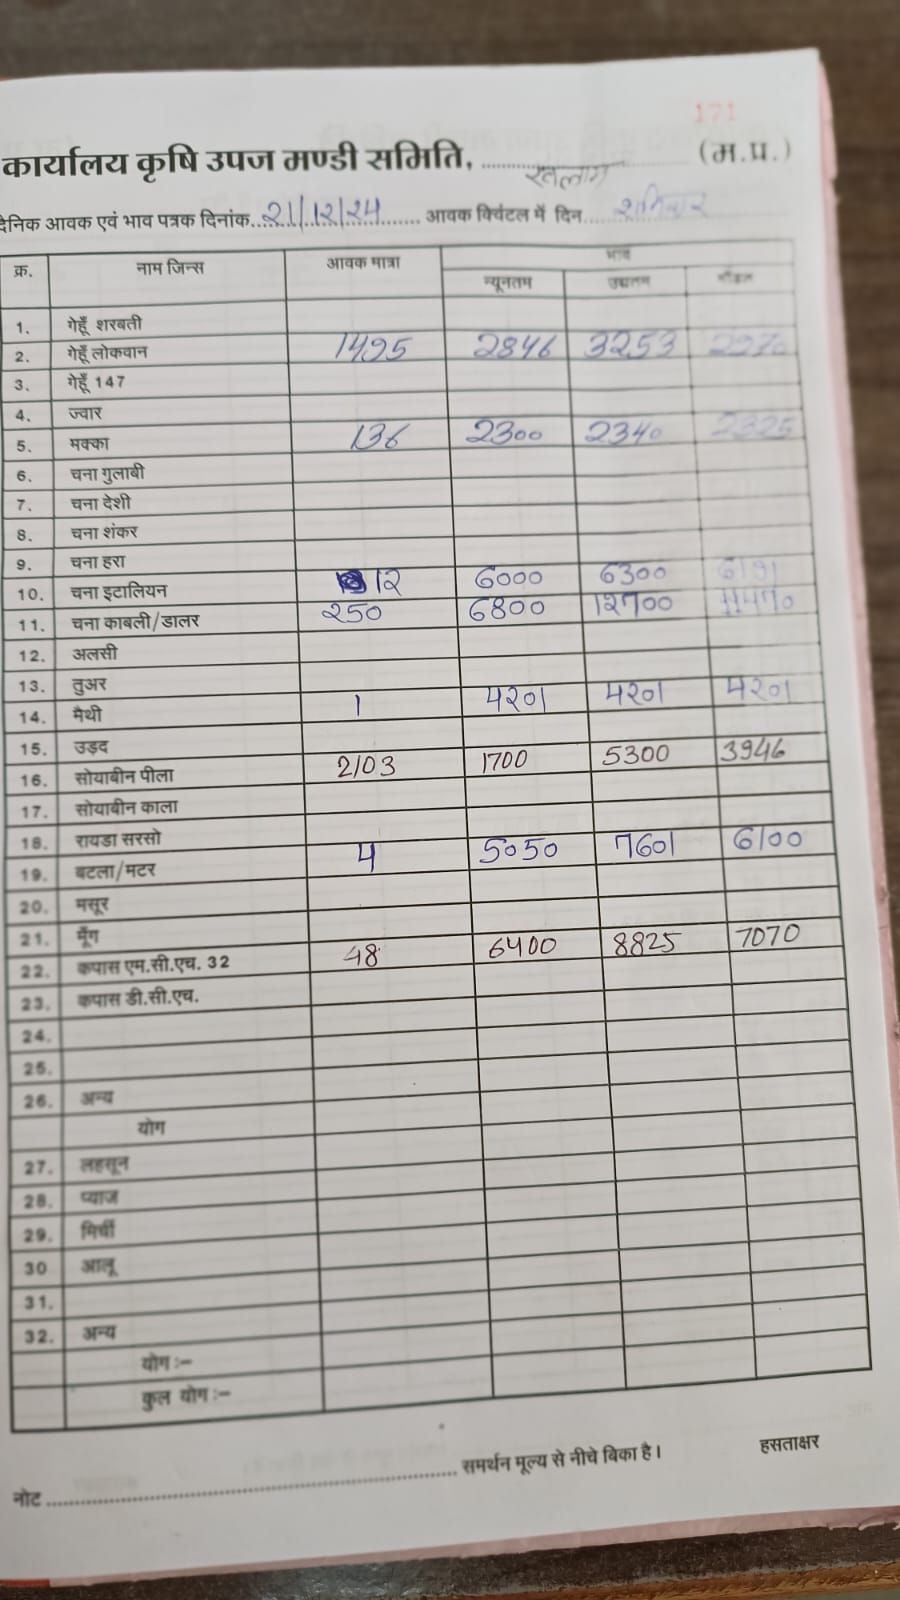 171
कार्यालय कृषि उपज मण्डी समिति, रतलाम (म.प्र.)
दैनिक आवक एवं भाव पत्रक दिनांक 21/12/24 आवक क्विंटल में दिन शनिवार
क्र. नाम जिन्स आवक मात्रा भाव
न्यूनतम उच्चतम मॉडल
1. गेहूँ शरबती
2. गेहूँ लोकवान 1495 2846 3253
3. गेहूँ 147
4. ज्वार
5. मक्का 136 2300 2340 2325
6. चना गुलाबी
7. चना देशी
8. चना शंकर
9. चना हरा
10. चना इटालियन 12 6000 6300 6191
11. चना काबली/डालर 250 6800 12700 11470
12. अलसी
13. तुअर
14. मैथी 1 4201 4201 4201
15. उड़द
16. सोयाबीन पीला 2103 1700 5300 3946
17. सोयाबीन काला
18. रायडा सरसो
19. बटला/मटर 4 5050 7601 6100
20. मसूर
21. मूँग
22. कपास एम.सी.एच. 32 48 6400 8825 7070
23. कपास डी.सी.एच.
24.
25.
26. अन्य
योग
27. लहसून
28. प्याज
29. मिर्ची
30 आलू
31.
32. अन्य
योग :-
कुल योग :-
नोट समर्थन मूल्य से नीचे बिका है। हसताक्षर